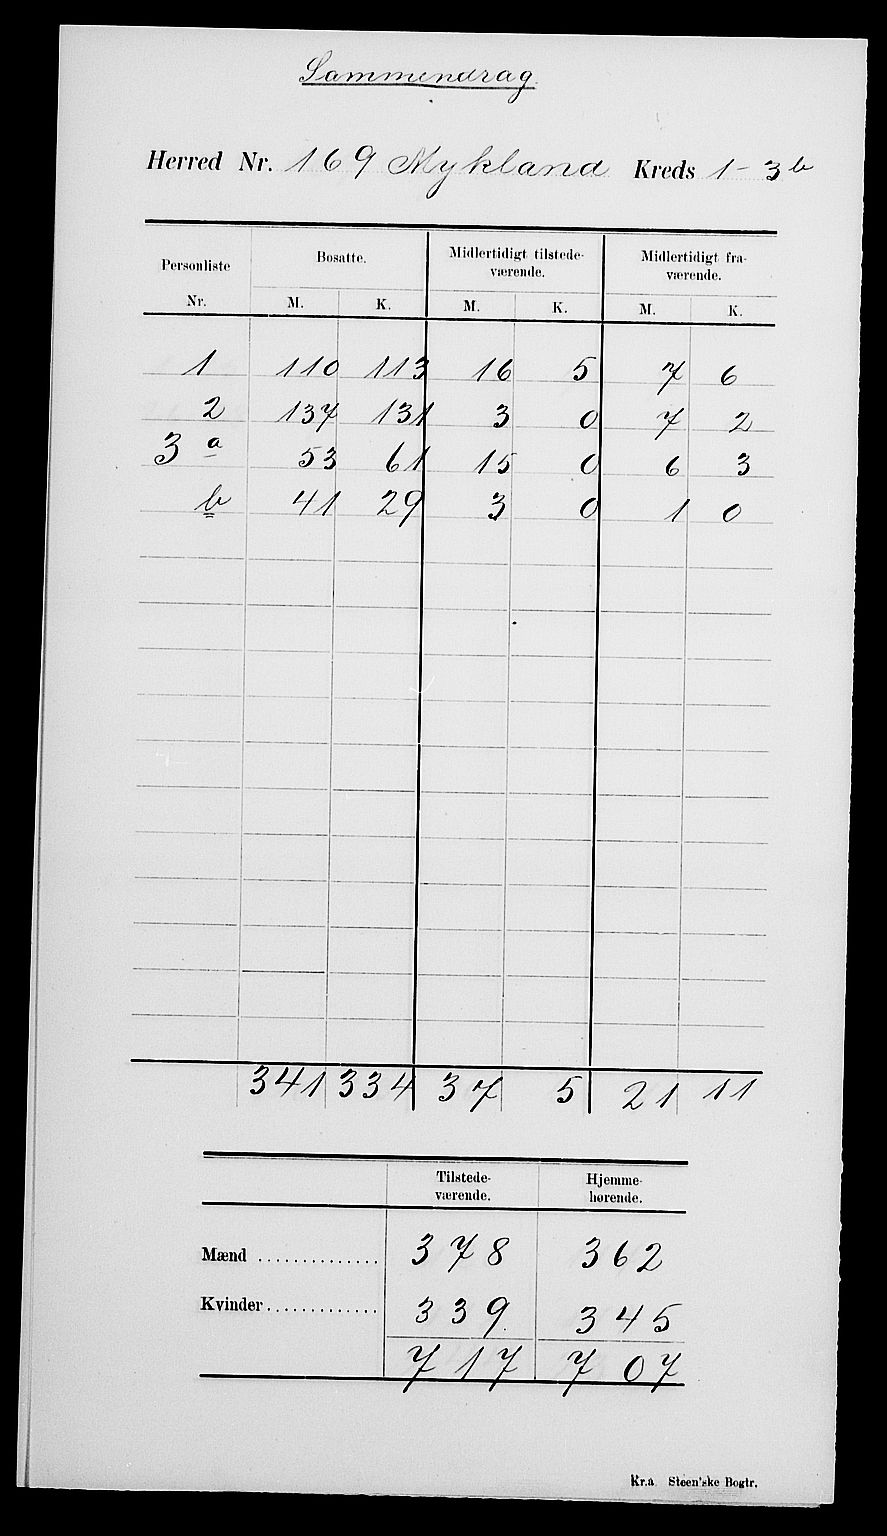 Sammendrag.
Herred Nr. 169 Mykland Kreds 1-3b
Personliste Nr. Bosatte. Midlertidigt tilstede-værende. Midlertidigt fra-værende.
M. K. M. K. M. K.
1 110 113 16 5 7 6
2 137 131 3 0 7 2
3 a 53 61 15 0 6 3
b 41 29 3 0 1 0
341 334 37 5 21 11
Tilstede-værende. Hjemme-hørende.
Mænd .............. 378 362
Kvinder............. 339 345
717 707
Kr.a Steen'ske Bogtr.